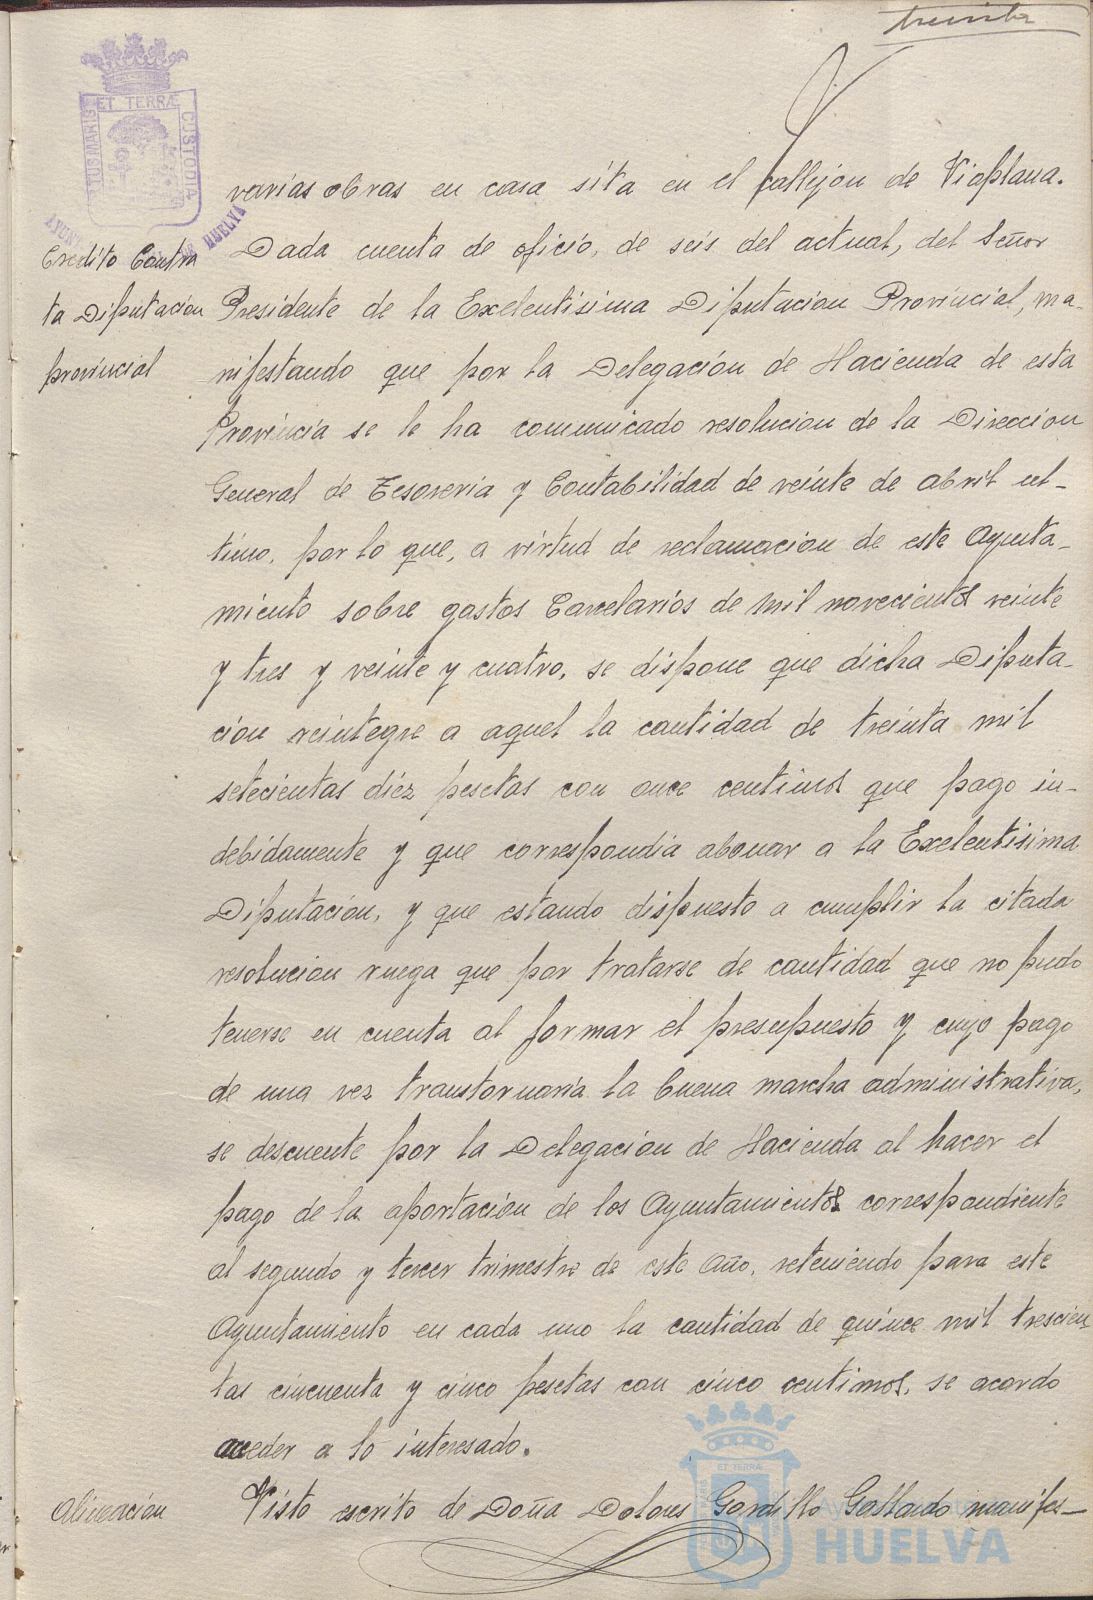 treinta
PORTUS MARIS ET TERRÆ CUSTODIA
HUELVA
varias obras en casa sita en el callejon de Viaplana.
Credito Contra
ta Diputacion
provincial
Dada cuenta de oficio, de seis del actual, del Señor
Presidente de la Exelentisima Diputacion Provincial, ma-
nifestando que por la Delegación de Hacienda de esta
Provincia se le ha comunicado resolucion de la Direccion
General de Tesoreria y Contabilidad de veinte de abril ul-
timo, por lo que, a virtud de reclamacion de este Ayunta-
miento sobre gastos Carcelarios de mil novecientos veinte
y tres y veinte y cuatro, se dispone que dicha Diputa-
ción reintegre a aquel la cantidad de treinta mil
setecientas diez pesetas con once centimos que pago in-
debidamente y que correspondia abonar a la Exelentisima
Diputación, y que estando dispuesto a cumplir la citada
resolucion ruega que por tratarse de cantidad que no pudo
tenerse en cuenta al formar el presupuesto y cuyo pago
de una vez transtornaria la buena marcha administrativa,
se descuente por la Delegación de Hacienda al hacer el
pago de la aportación de los Ayuntamientos correspondiente
al segundo y tercer trimestre de este año, reteniendo para este
Ayuntamiento en cada uno la cantidad de quince mil trescien-
tas cincuenta y cinco pesetas con cinco centimos, se acordo
acceder a lo interesado.
Alineación
Visto escrito de Doña Dolores Gordillo Gallardo manifes-
Ayuntamiento
HUELVA